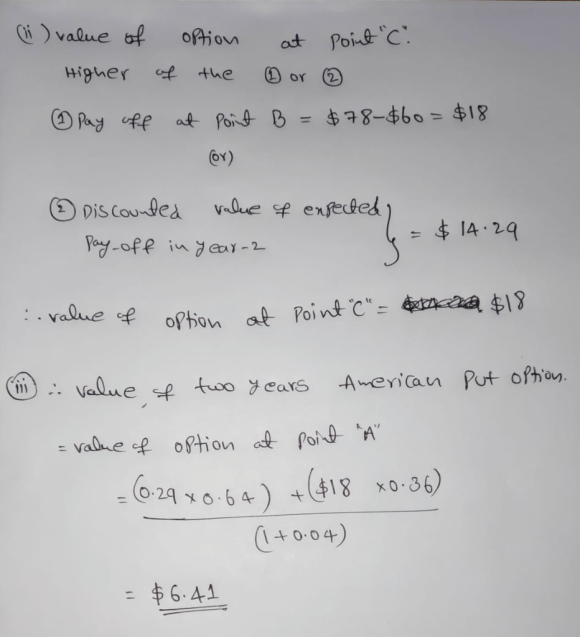 (ii) value of option at point "C".
Higher of the ① or ②
① Pay off at Point B = $78-$60 = $18
(or)
② Discounted value of expected
Pay-off in year-2 } = $ 14.29
∴ value of option at Point "C" = $18
(iii) ∴ value of two years American Put option.
= value of option at Point "A"
= (0.29 x 0.64) + ($18 x0.36)
(1+0.04)
= $6.41